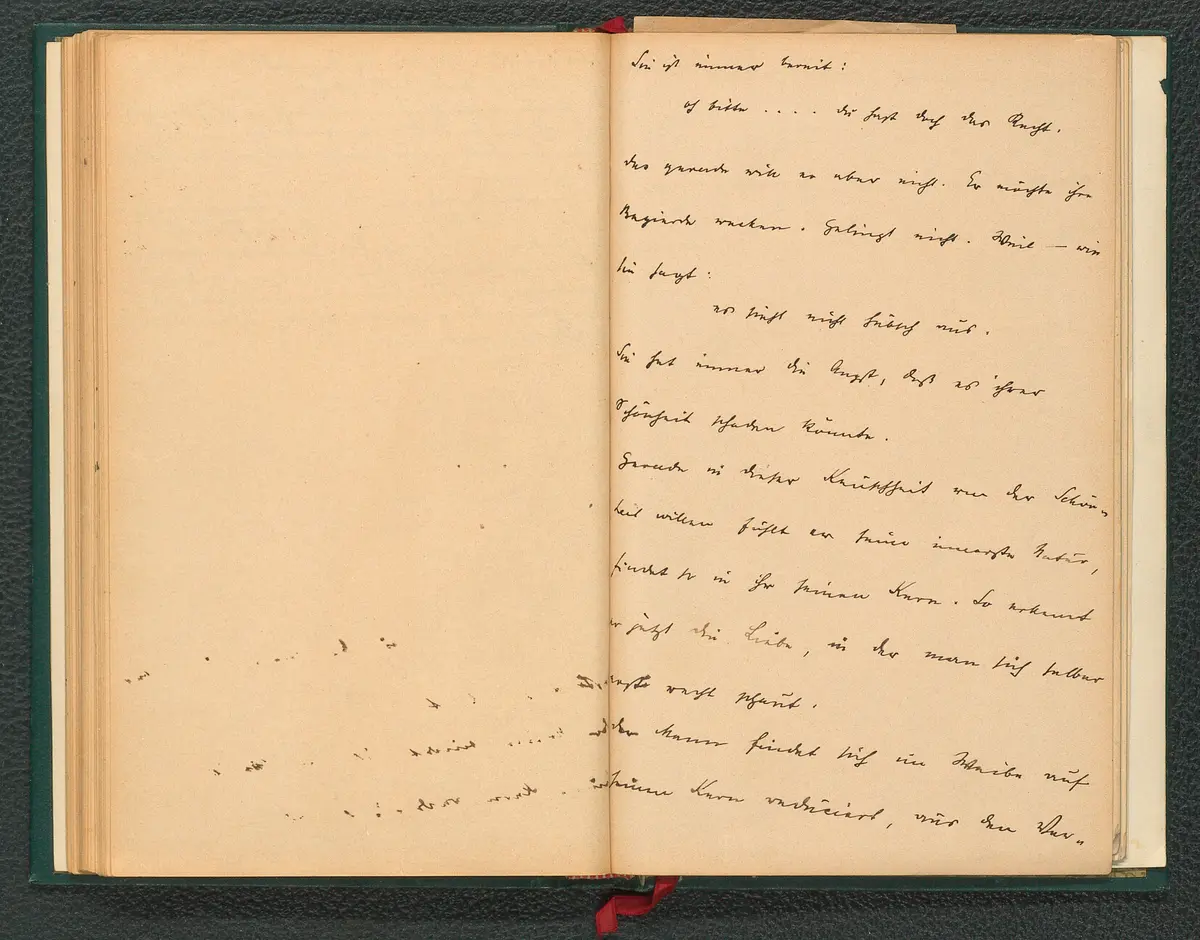 Sie ist immer bereit:
oh bitte .... du hast doch das Recht.
das gerade will er aber nicht. Er möchte ihre
Begierde wecken. Gelingt nicht. Weil — wie
sie sagt:
es sieht nicht hübsch aus.
Sie hat immer die Angst, daß es ihrer
Schönheit schaden könnte.
Gerade in dieser Keuschheit um der Schön-
heit willen fühlt er seine innerste Natur,
findet so in ihr seinen Kern. So erkennt
er jetzt die Liebe, in der man sich selber
erst recht schaut.
der Mann findet sich im Weibe auf
seinen Kern reduciert, aus den Ver-